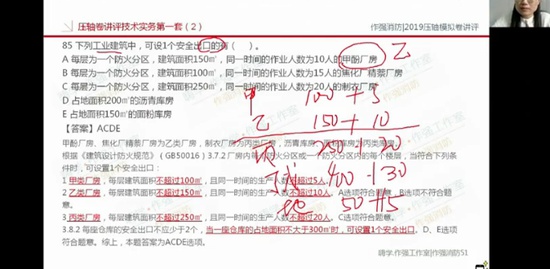 压轴卷讲评技术实务第一套（2）
作强消防|2019压轴模拟卷讲评
85 下列工业建筑中，可设1个安全出口的有（ ）。
乙
A 每层为一个防火分区，建筑面积150㎡，同一时间的作业人数为10人的甲酚厂房
B 每层为一个防火分区，建筑面积100㎡，同一时间的作业人数为15人的焦化厂精萘厂房
C 每层为一个防火分区，建筑面积250㎡，同一时间的作业人数为20人的制衣厂房
D 占地面积200㎡的沥青库房
E 占地面积150㎡的面粉库房
【答案】ACDE
甲 100 + 5
乙 150 + 10
丙 250 + 20
400 + 30
地 50 + 15
甲酚厂房、焦化厂精萘厂房为乙类厂房，制衣厂房为丙类厂房，沥青库房、
根据《建筑设计防火规范》（GB50016）3.7.2 厂房内每个防火分区或一个防火分区内的每个楼层，当符合下列条
件时，可设置1个安全出口：
1 甲类厂房，每层建筑面积不超过100㎡，且同一时间的生产人数不超过5人
2 乙类厂房，每层建筑面积不超过150㎡，且同一时间的生产人数不超过10人，A选项符合题意，B选项不符合题
意。
3 丙类厂房，每层建筑面积不超过250㎡，且同一时间的生产人数不超过20人，C选项符合题意。
3.8.2 每座仓库的安全出口不应少于2个，当一座仓库的占地面积不大于300㎡时，可设置1个安全出口，D、E选项
符合题意。综上，本题答案为ACDE选项。
嗨学.作强工作室|作强消防51